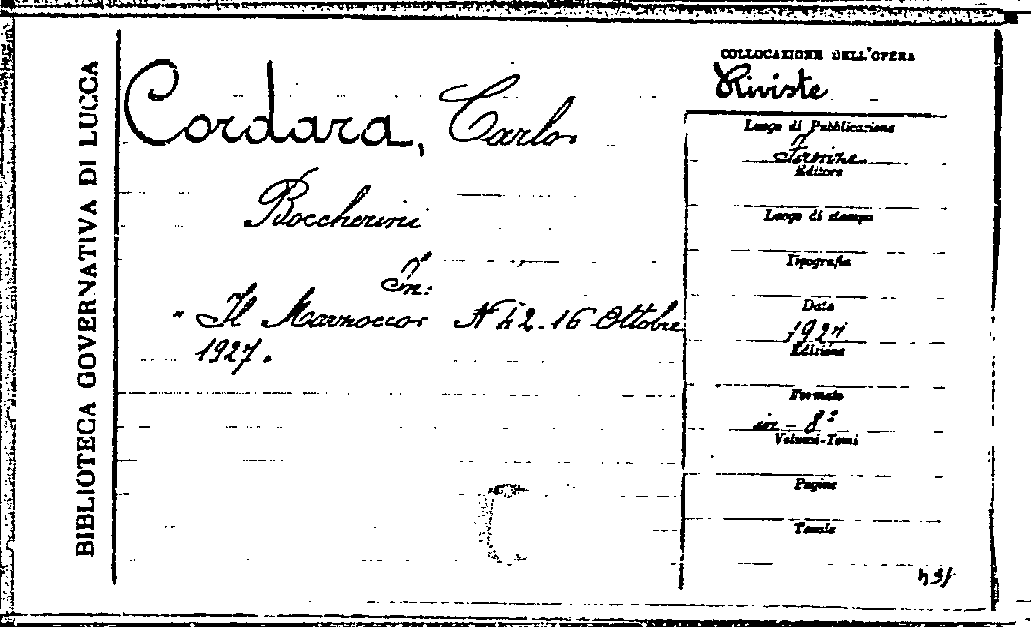 BIBLIOTECA GOVERNATIVA DI LUCCA
Cordara, Carlo
Boccherini
In:
" Il Marzocco N 42 - 16 Ottobre
1927.
COLLOCAZIONE DELL'OPERA
Riviste
Luogo di Pubblicazione
Firenze
Editore
Luogo di stampa
Tipografia
Data
1927
Edizione
Formato
in - 8º
Volumi-Tomi
Pagine
Tavole